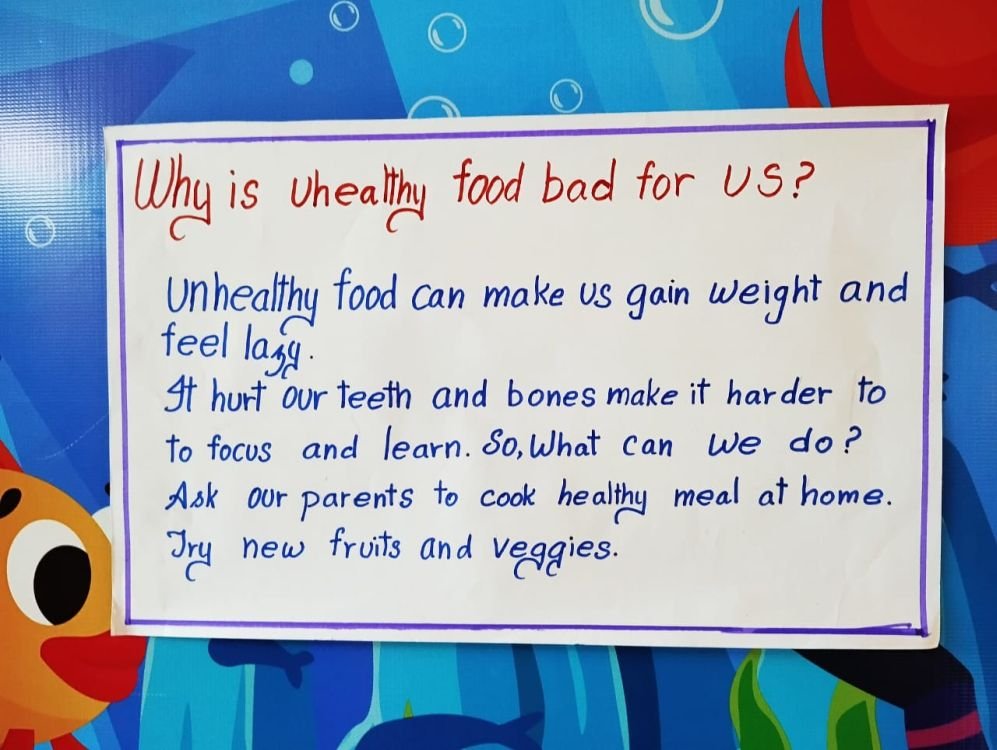 Why is uhealthy food bad for us?
Unhealthy food can make us gain weight and
feel lazy.
It hurt our teeth and bones make it harder to
to focus and learn. So, What can we do?
Ask our parents to cook healthy meal at home.
Try new fruits and veggies.